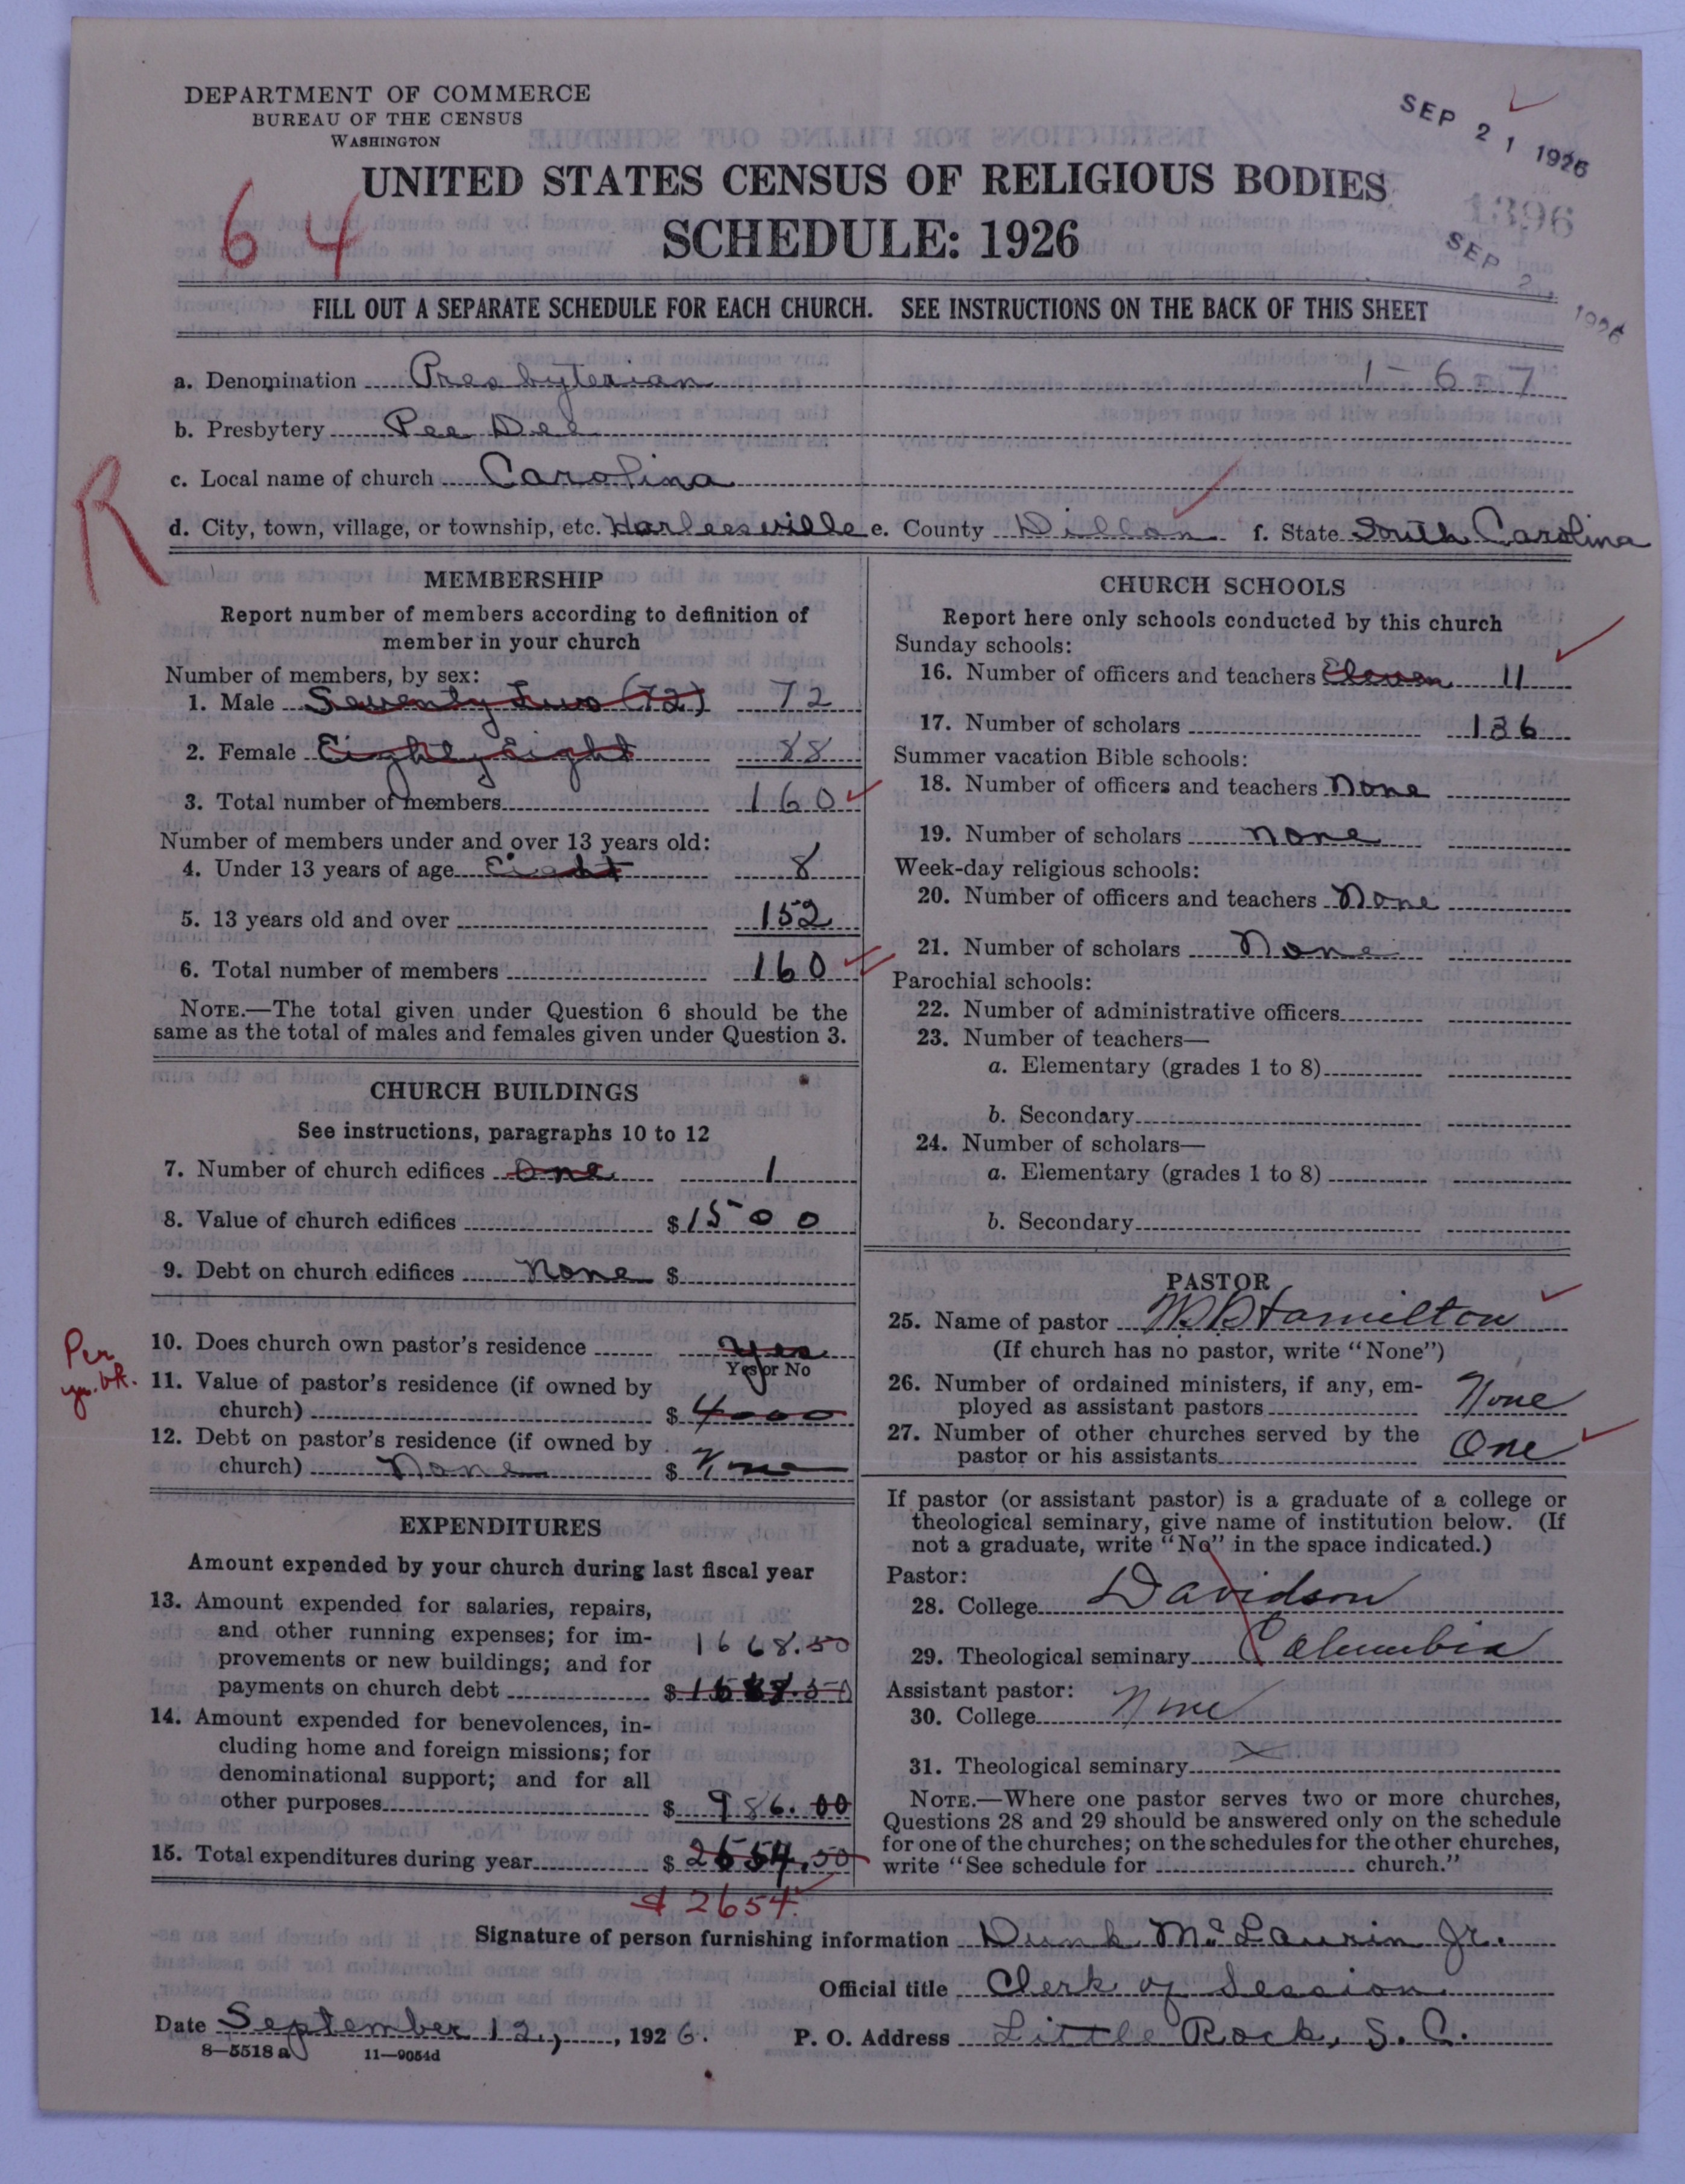 DEPARTMENT OF COMMERCE
BUREAU OF THE CENSUS
WASHINGTON
SEP 21 1926
UNITED STATES CENSUS OF RELIGIOUS BODIES
1396
64
SCHEDULE: 1926
SEP 2 1926
FILL OUT A SEPARATE SCHEDULE FOR EACH CHURCH. SEE INSTRUCTIONS ON THE BACK OF THIS SHEET
a. Denomination Presbyterian 1-6-7
b. Presbytery Pee Dee
c. Local name of church Carolina
R
d. City, town, village, or township, etc. Harleesville e. County Dillon f. State South Carolina
MEMBERSHIP
Report number of members according to definition of
member in your church
Number of members, by sex:
1. Male Seventy Two (72) 72
2. Female Eighty Eight 88
3. Total number of members 160
Number of members under and over 13 years old:
4. Under 13 years of age Eight 8
5. 13 years old and over 152
6. Total number of members 160
NOTE.—The total given under Question 6 should be the
same as the total of males and females given under Question 3.
CHURCH BUILDINGS
See instructions, paragraphs 10 to 12
7. Number of church edifices One 1
8. Value of church edifices $1500
9. Debt on church edifices None $
Per
yr. bk.
10. Does church own pastor's residence Yes
Yes or No
11. Value of pastor's residence (if owned by
church) $ 4000
12. Debt on pastor's residence (if owned by
church) None $ None
EXPENDITURES
Amount expended by your church during last fiscal year
13. Amount expended for salaries, repairs,
and other running expenses; for im- 1668.50
provements or new buildings; and for
payments on church debt $
14. Amount expended for benevolences, in-
cluding home and foreign missions; for
denominational support; and for all
other purposes $ 986.00
15. Total expenditures during year $ 2654.50
$ 2654
CHURCH SCHOOLS
Report here only schools conducted by this church
Sunday schools:
16. Number of officers and teachers Eleven 11
17. Number of scholars 136
Summer vacation Bible schools:
18. Number of officers and teachers None
19. Number of scholars None
Week-day religious schools:
20. Number of officers and teachers None
21. Number of scholars None
Parochial schools:
22. Number of administrative officers
23. Number of teachers—
a. Elementary (grades 1 to 8)
b. Secondary
24. Number of scholars—
a. Elementary (grades 1 to 8)
b. Secondary
PASTOR
25. Name of pastor Hamilton
(If church has no pastor, write "None")
26. Number of ordained ministers, if any, em-
ployed as assistant pastors None
27. Number of other churches served by the
pastor or his assistants One
If pastor (or assistant pastor) is a graduate of a college or
theological seminary, give name of institution below. (If
not a graduate, write "No" in the space indicated.)
Pastor:
28. College Davidson
29. Theological seminary Columbia
Assistant pastor:
30. College None
31. Theological seminary
NOTE.—Where one pastor serves two or more churches,
Questions 28 and 29 should be answered only on the schedule
for one of the churches; on the schedules for the other churches,
write "See schedule for church."
Signature of person furnishing information Dunk McLaurin Jr.
Official title Clerk of Session
Date September 12, 1926. P. O. Address Little Rock, S. C.
8—5518a 11—9054d